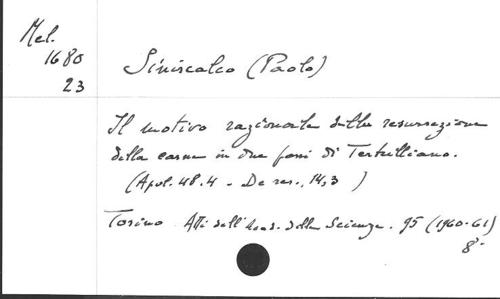 Mel.
1680
23
Siniscalco (Paolo)
Il motivo razionale della resurrezione
della carne in due passi di Tertulliano.
(Apol. 48.4 - De res., 14,3 )
Torino. Atti dell'Acad. delle Scienze. 95 (1960-61)
8°